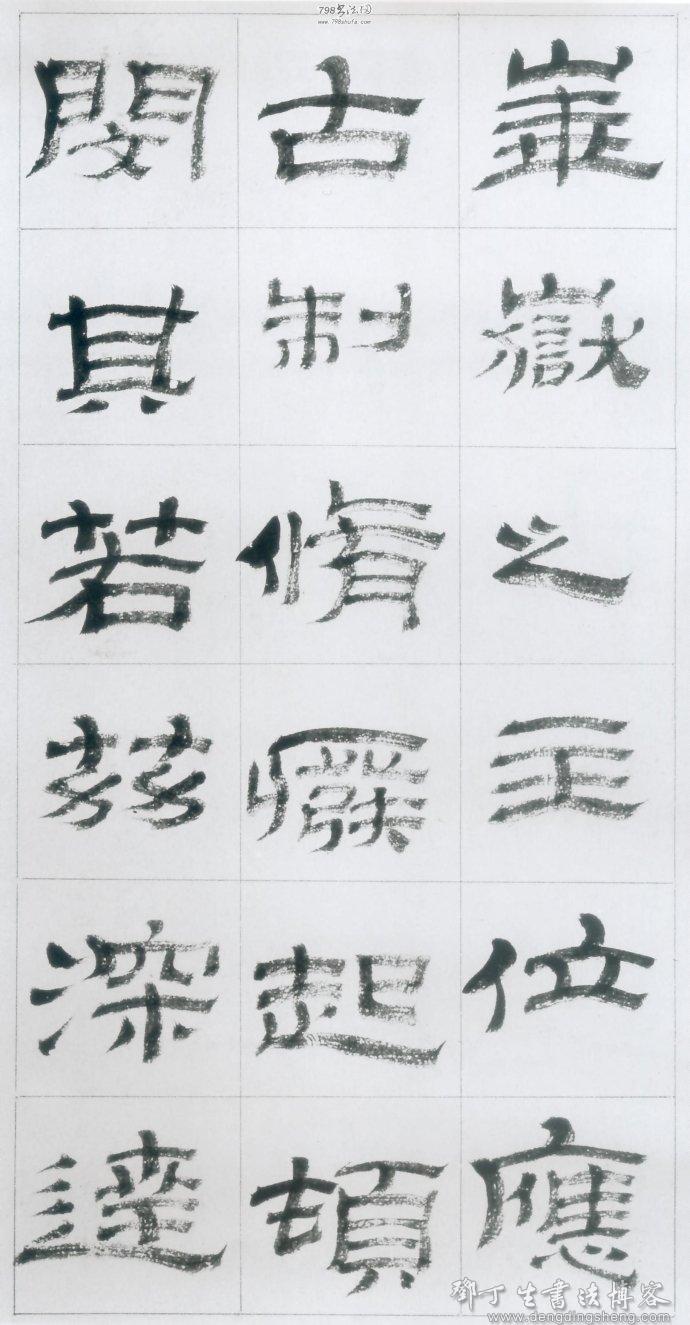 798书法网
www.798shufa.com
崋嶽之主位應
古制脩癈起頓
閔其若兹深達
鄧丁生書法博客
www.dengdingsheng.com